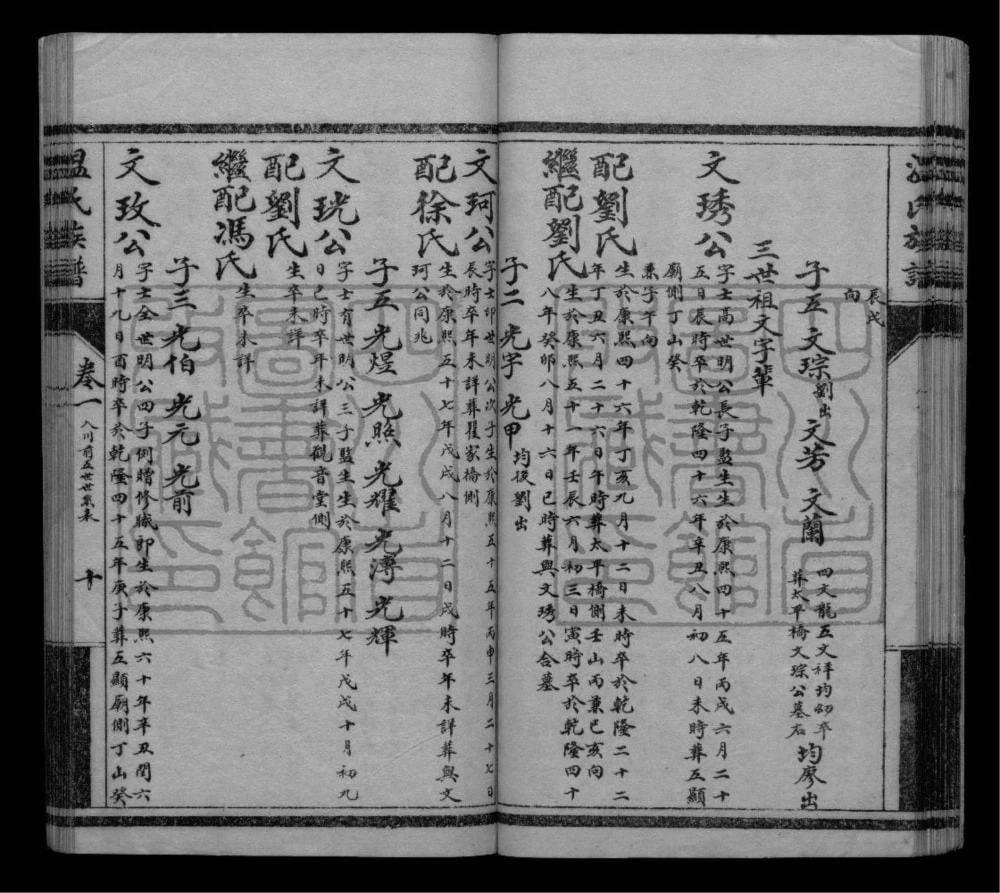 辰戌
向
子五 文琮 劉出 文芳 文蘭 四文龍五文祥均幼卒葬太平橋文琮公墓右 均廖出
三世祖文字輩
文琇公
字士高世明公長子監生生於康熙四十五年丙戌六月二十
五日辰時卒於乾隆四十六年辛丑八月初八日未時葬五顯
廟側丁山癸
兼子午向
配劉氏
生於康熙四十六年丁亥九月十二日未時卒於乾隆二十二
年丁丑六月二十六日午時葬太平橋側壬山丙兼巳亥向
繼配劉氏
生於康熙五十一年壬辰六月初三日寅時卒於乾隆四十
八年癸卯八月十六日巳時葬與文琇公合墓
子二 光宇 光甲 均後劉出
文珂公
字士卯世明公次子生於康熙五十五年丙申三月二十七日
辰時卒年未詳葬瞿家橋側
配徐氏
生於康熙五十七年戊戌八月十二日戌時卒年未詳葬與文
珂公同兆
子五 光煜 光照 光耀 光溥 光輝
文珖公
字士有世明公三子監生生於康熙五十七年戊戌十月初九
日巳時卒年未詳葬觀音堂側
配劉氏
生卒未詳
繼配馮氏
生卒未詳
子三 光伯 光元 光前
文玫公
字士全世明公四子例贈修職郎生於康熙六十年辛丑閏六
月十九日酉時卒於乾隆四十五年庚子葬五顯廟側丁山癸
溫氏族譜
卷一
入川前五世世系表
十